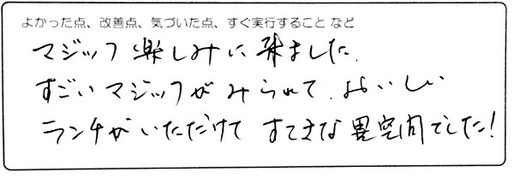 よかった点、改善点、気づいた点、すぐ実行すること など
マジック楽しみに来ました.
すごいマジックがみられて、おいしい
ランチがいただけて すてきな異空間でした!